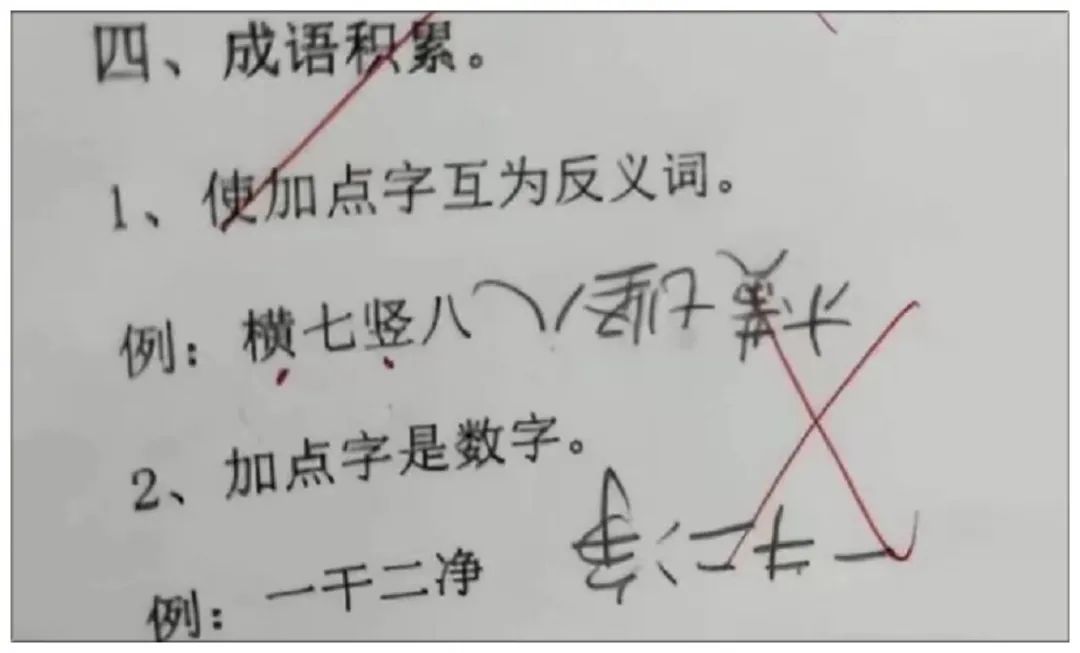 四、成语积累。
1、使加点字互为反义词。
例：横七竖八 横七竖八
2、加点字是数字。
例：一干二净 一干二净